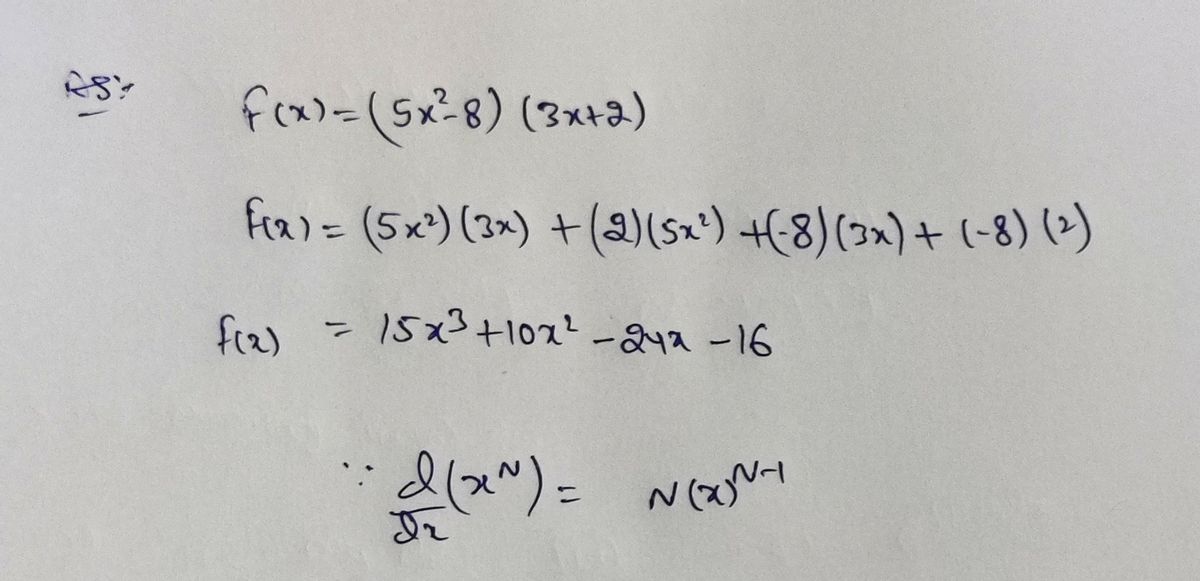 AS:-
f(x) = (5x²-8) (3x+2)
f(x) = (5x²)(3x) + (2)(5x²) +(-8)(3x) + (-8) (2)
f(x) = 15x³ +10x² -24x -16
∵ d/dx (x^N) = N(x)^N-1